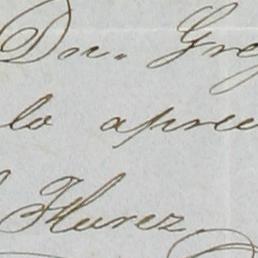 Dn. Greg
lo apree
Florez